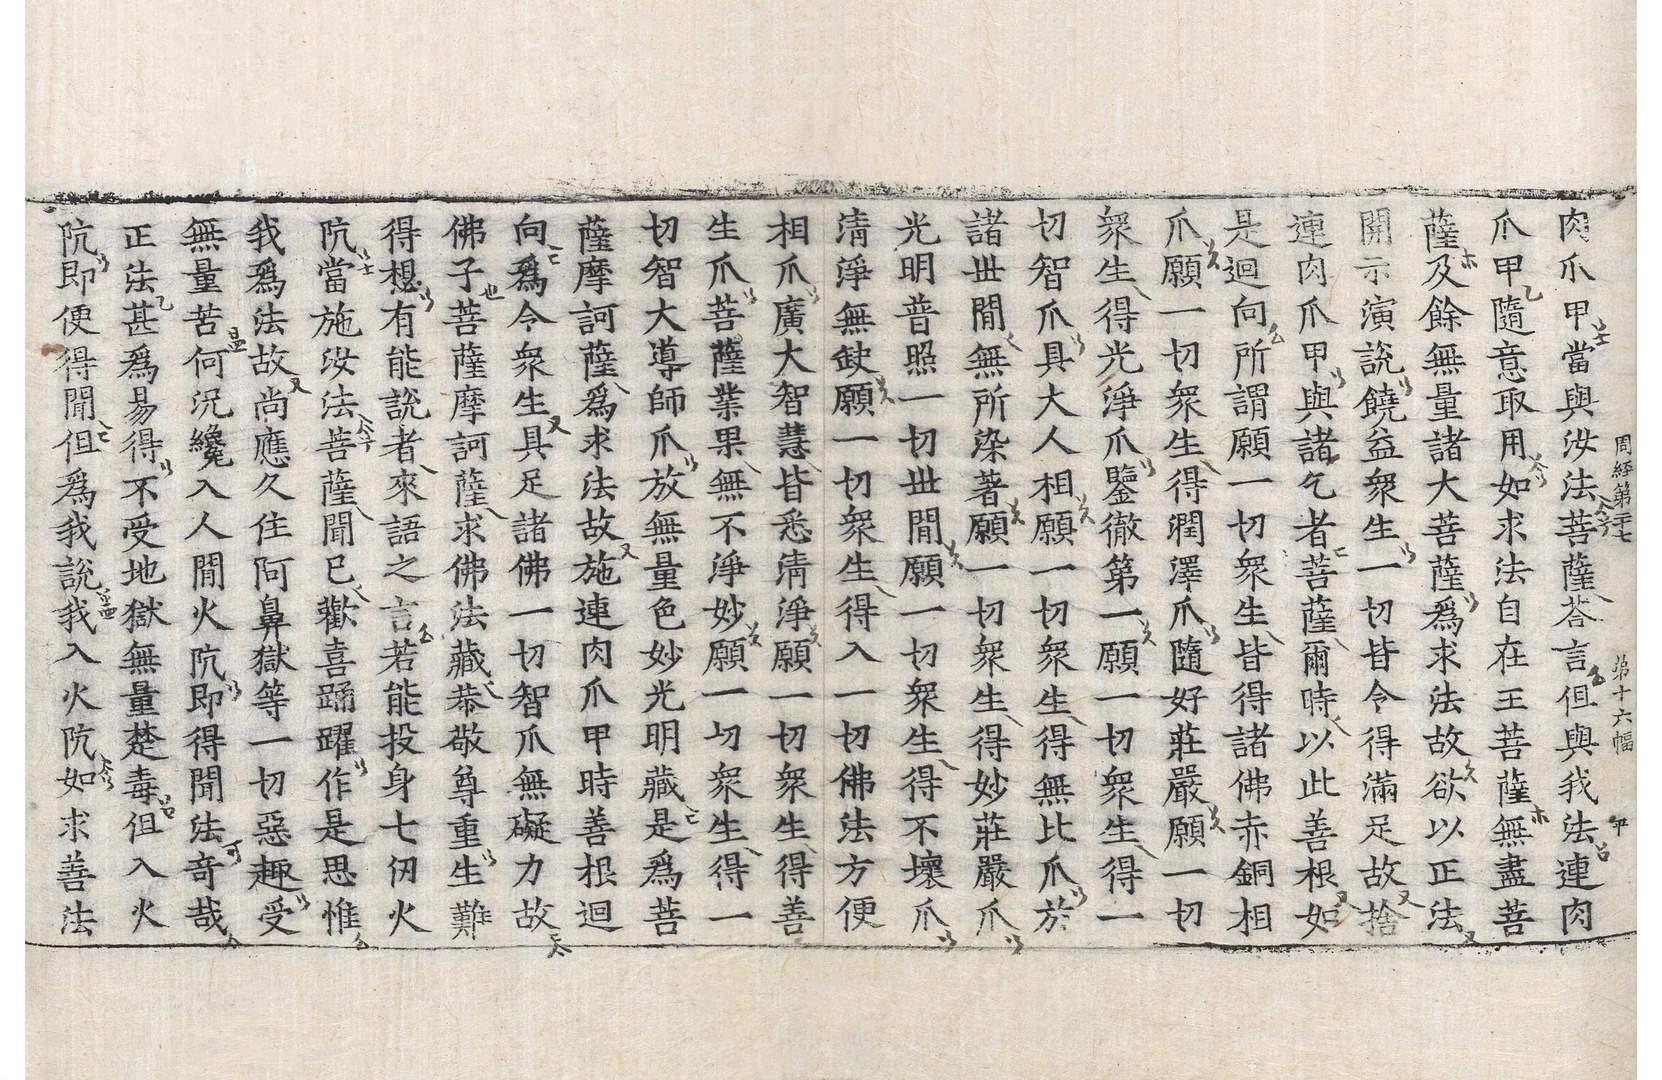 周經第二十七 第十六幅
肉爪甲當與汝法菩薩荅言但與我法連肉
爪甲隨意取用如求法自在王菩薩無盡菩
薩及餘無量諸大菩薩爲求法故欲以正法
開示演說饒益衆生一切皆令得滿足故捨
連肉爪甲與諸乞者菩薩爾時以此善根如
是迴向所謂願一切衆生皆得諸佛赤銅相
爪願一切衆生得潤澤爪隨好莊嚴願一切
衆生得光淨爪鑒徹第一願一切衆生得一
切智爪具大人相願一切衆生得無比爪於
諸世間無所染著願一切衆生得妙莊嚴爪
光明普照一切世間願一切衆生得不壞爪
清淨無缺願一切衆生得入一切佛法方便
相爪廣大智慧皆悉清淨願一切衆生得善
生爪菩薩業果無不淨妙願一切衆生得一
切智大導師爪放無量色妙光明藏是爲菩
薩摩訶薩爲求法故施連肉爪甲時善根迴
向爲令衆生具足諸佛一切智爪無礙力故
佛子菩薩摩訶薩求佛法藏恭敬尊重生難
得想有能說者來語之言若能投身七仞火
阬當施汝法菩薩聞已歡喜踊躍作是思惟
我爲法故尚應久住阿鼻獄等一切惡趣受
無量苦何況纔入人間火阬即得聞法奇哉
正法甚爲易得不受地獄無量楚毒但入火
阬即便得聞但爲我說我入火阬如求善法